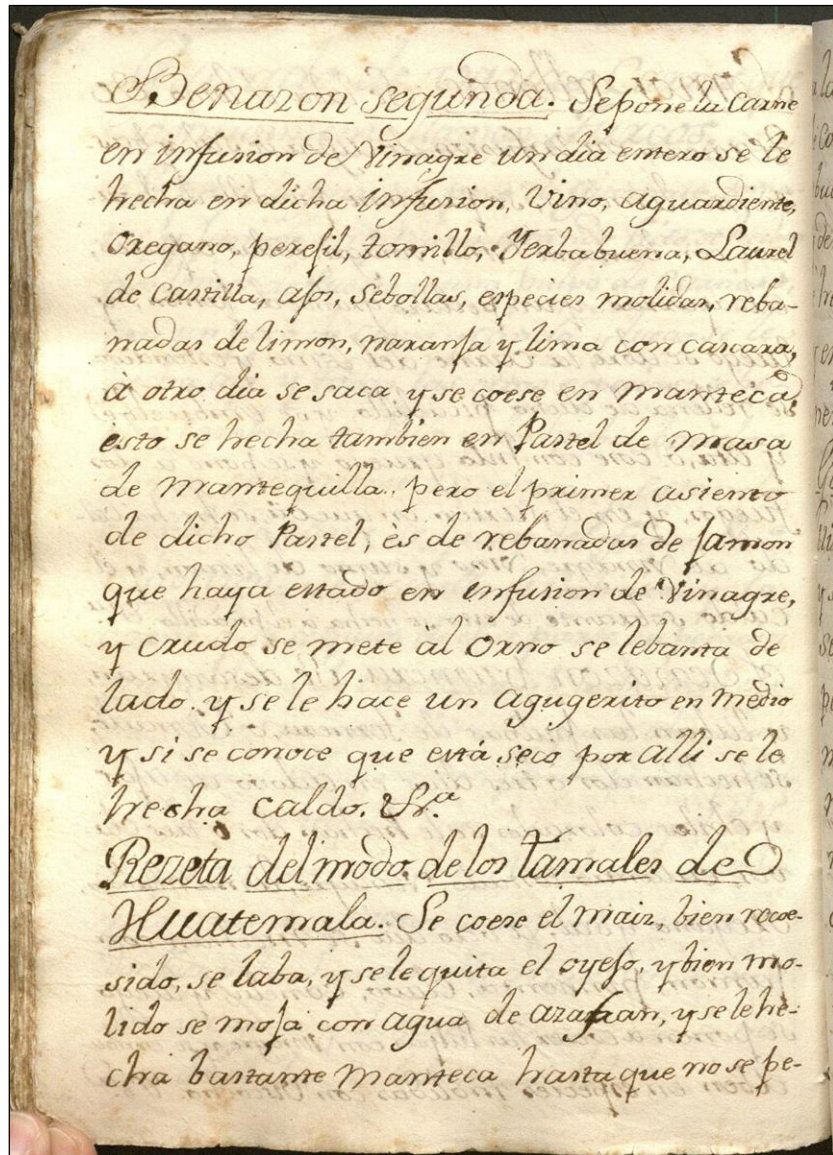 Benazon segunda. Se pone la Carne
en infusion de Vinagre un dia entero se le
hecha en dicha infusion, Vino, aguardiente,
Oregano, perefil, tomillo, Yerbabuena, Laurel
de Castilla, ajos, Sebollas, especies molidas, reba-
nadas de limon, naranja y lima con cascara,
à otro dia se saca y se coese en Manteca,
esto se hecha tambien en Pastel de Masa
de Mantequilla. pero el primer asiento
de dicho Pastel, ès de rebanadas de Jamon
que haya estado en infusion de Vinagre,
y Crudo se mete àl Orno se lebanta de
lado. y se le hace un agugerito en medio
y si se conoce que està seco por alli se le
hecha Caldo. &r.ª
Rezeta del modo de los tamales de
Huatemala. Se coese el maiz, bien recoe-
sido, se laba, y se le quita el oyejo, y bien mo-
lido se moja con agua de azafran, y se le he-
cha bastante Manteca hasta que no se pe-